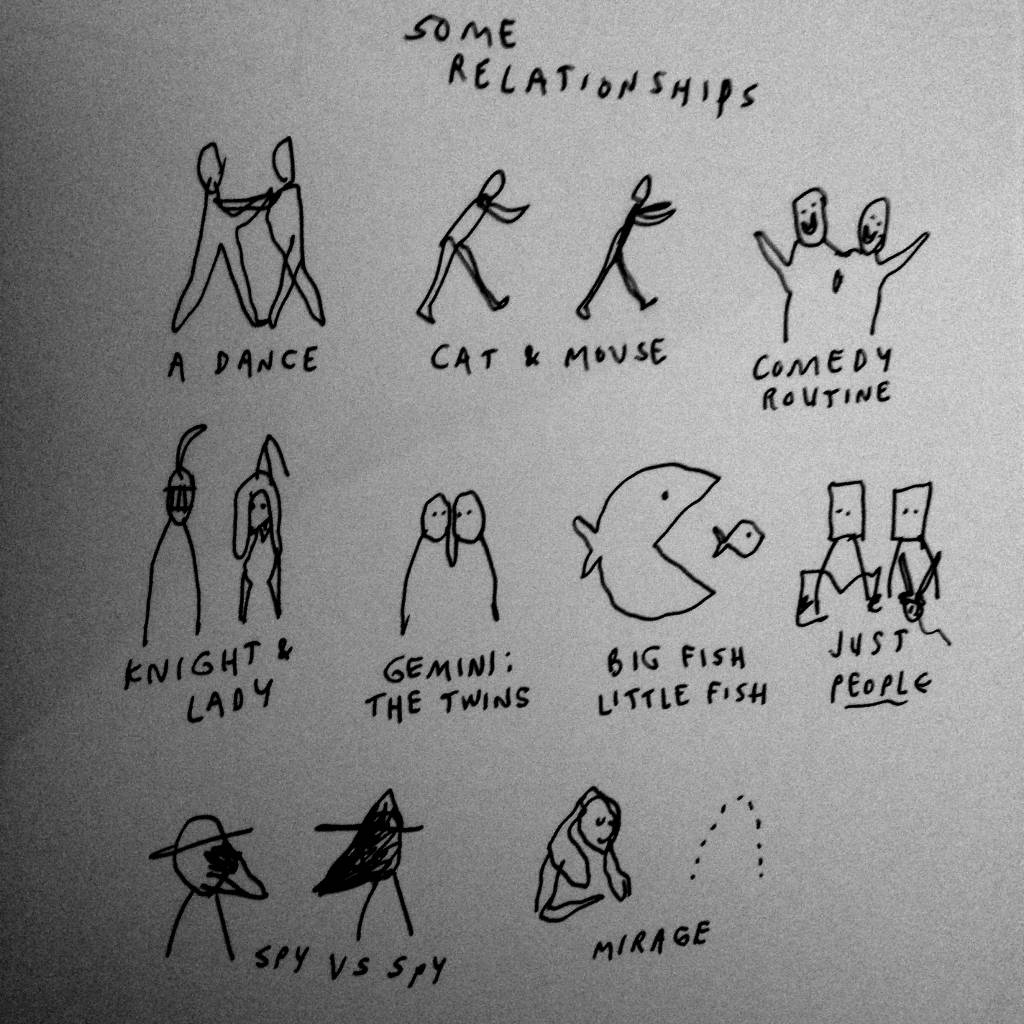 SOME
RELATIONSHIPS
A DANCE
CAT & MOUSE
COMEDY
ROUTINE
KNIGHT &
LADY
GEMINI:
THE TWINS
BIG FISH
LITTLE FISH
JUST
PEOPLE
SPY VS SPY
MIRAGE